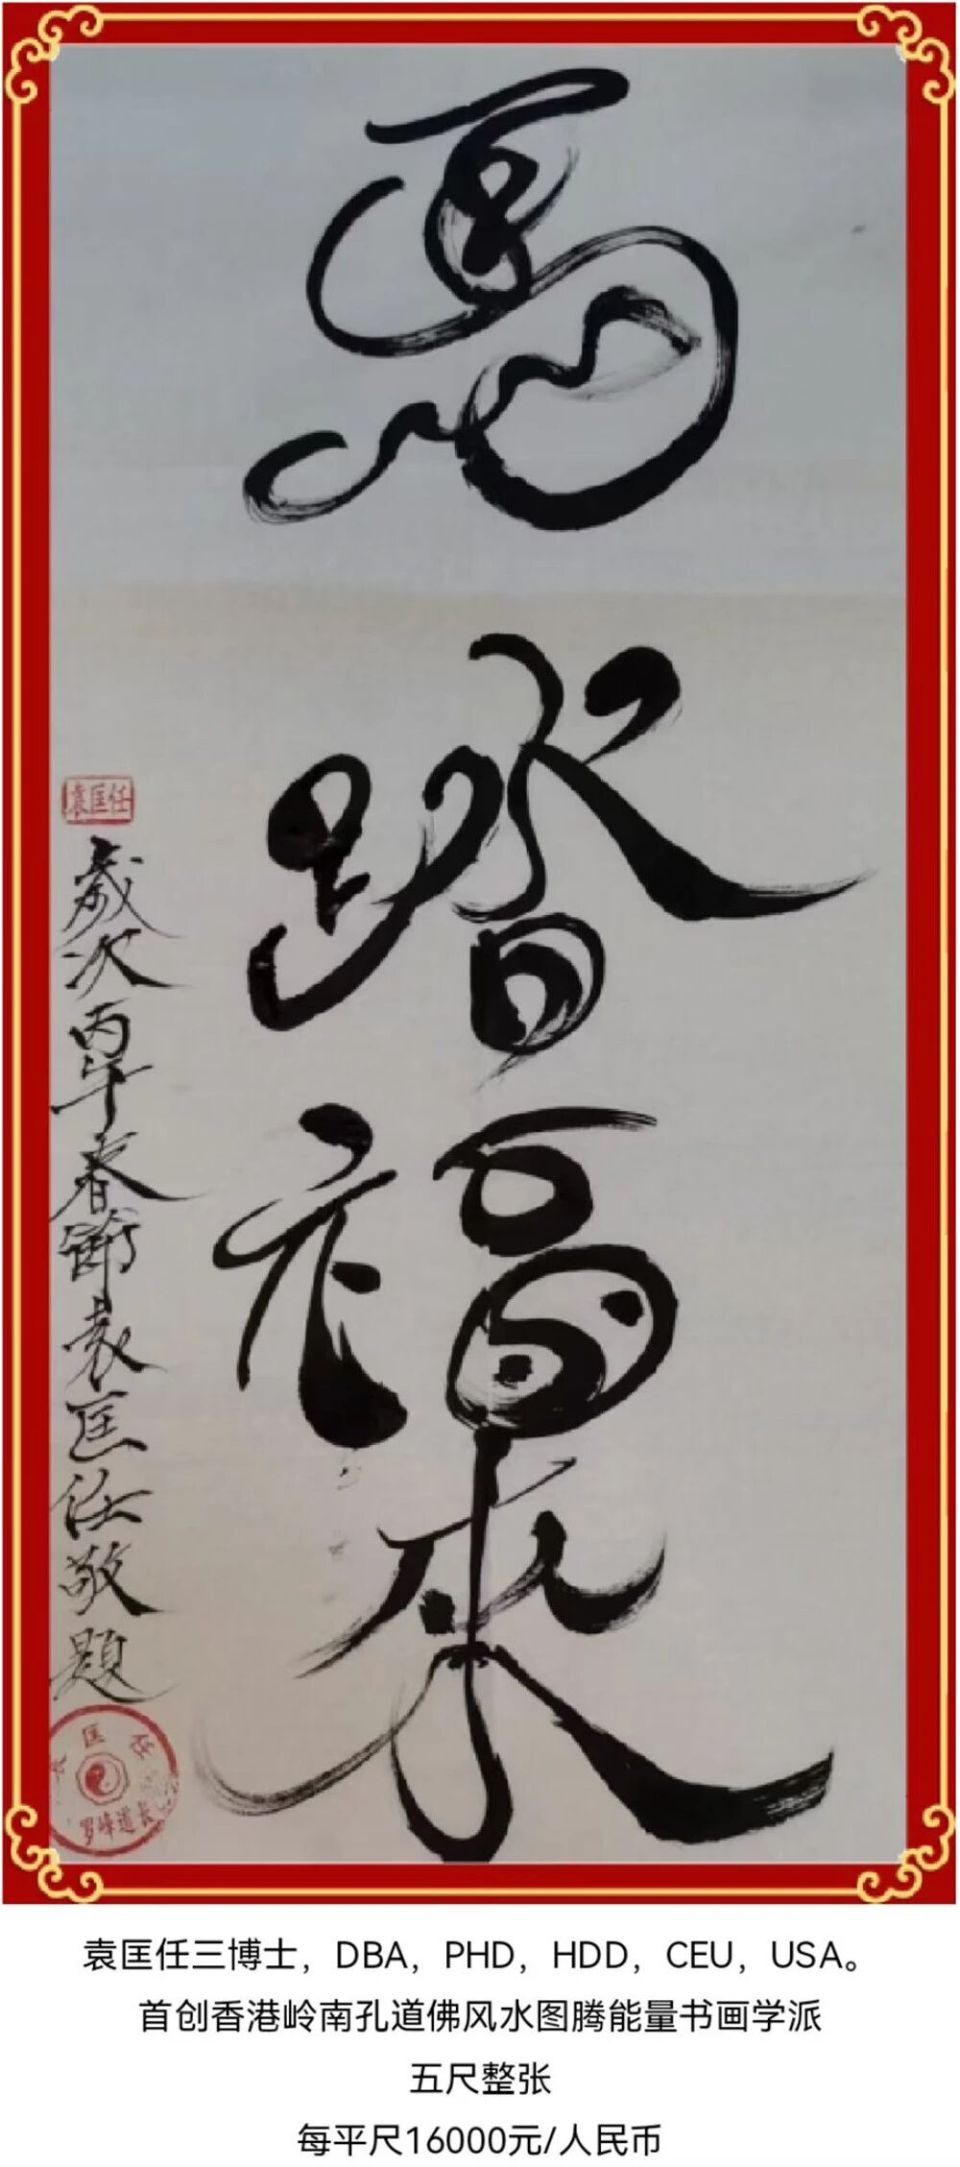 馬踏福来
袁匡任
歲次丙午春節袁匡任敬題
匡任
罗峰道长
袁匡任三博士，DBA，PHD，HDD，CEU，USA。
首创香港岭南孔道佛风水图腾能量书画学派
五尺整张
每平尺16000元/人民币